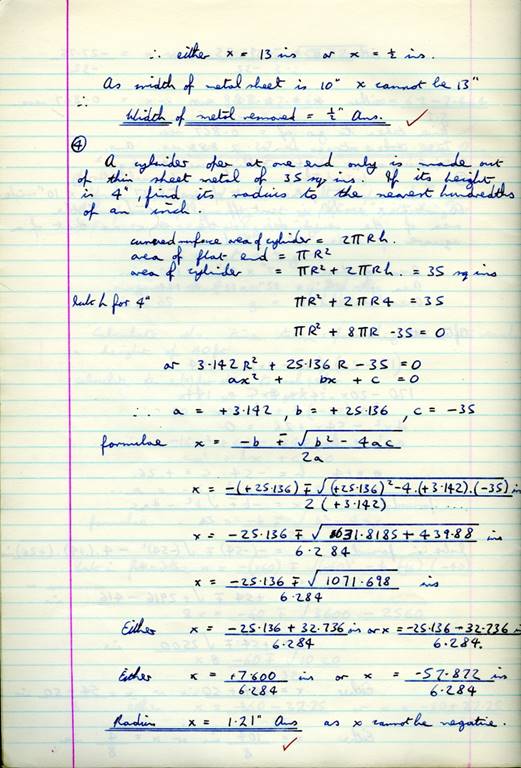 ∴ either x = 13 ins or x = ½ ins.
As width of metal sheet is 10" x cannot be 13"
∴
Width of metal removed = ½" Ans. ✓
④
A cylinder open at one end only is made out
of thin sheet metal of 35 sq ins. If its height
is 4", find its radius to the nearest hundredths
of an inch.
curved surface area of cylinder = 2πRh.
area of flat end = πR²
area of cylinder = πR² + 2πRh. = 35 sq ins
sub h for 4" πR² + 2πR4 = 35
πR² + 8πR - 35 = 0
or 3·142R² + 25·136R - 35 = 0
ax² + bx + c = 0
∴ a = +3·142, b = +25·136, c = -35
formulae x = -b ∓ √b² - 4ac / 2a
x = -(+25·136) ∓ √(+25·136)² - 4.(+3·142).(-35) ins / 2(+3·142)
x = -25·136 ∓ √631.8185 + 439.88 ins / 6·284
x = -25·136 ∓ √1071·698 ins / 6·284
Either x = -25·136 + 32·736 ins / 6·284 or x = -25·136 - 32·736 / 6·284.
Either x = +7·600 / 6·284 ins or x = -57·872 / 6·284 ins
Radius x = 1·21" Ans as x cannot be negative.
✓